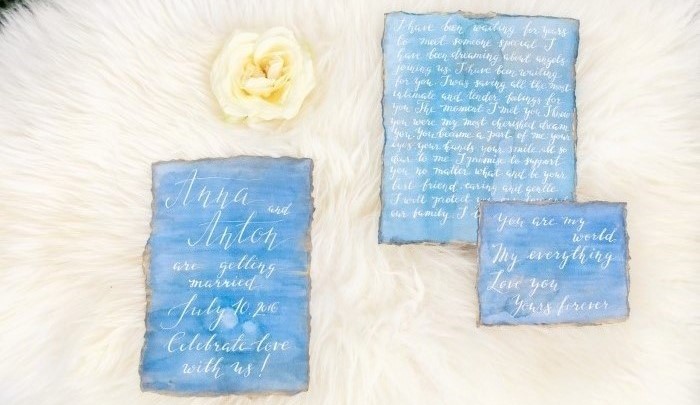 Anna
and
Anton
are getting
married
July 10, 2016
Celebrate love
with us!
I have been waiting for yours
to meet someone special I
have been dreaming about angels
joining us. I have been waiting
for you. I was saving all the most
intimate and tender feelings for
you. The moment I met you I knew
you were my most cherished dream
You. You became a part of me your
eyes your hands your smile. All so
dear to me. I promise to support
you no matter what and be your
best friend, caring and gentle.
I will protect
our family. I
You are my
world.
My everything
Love you
Yours forever